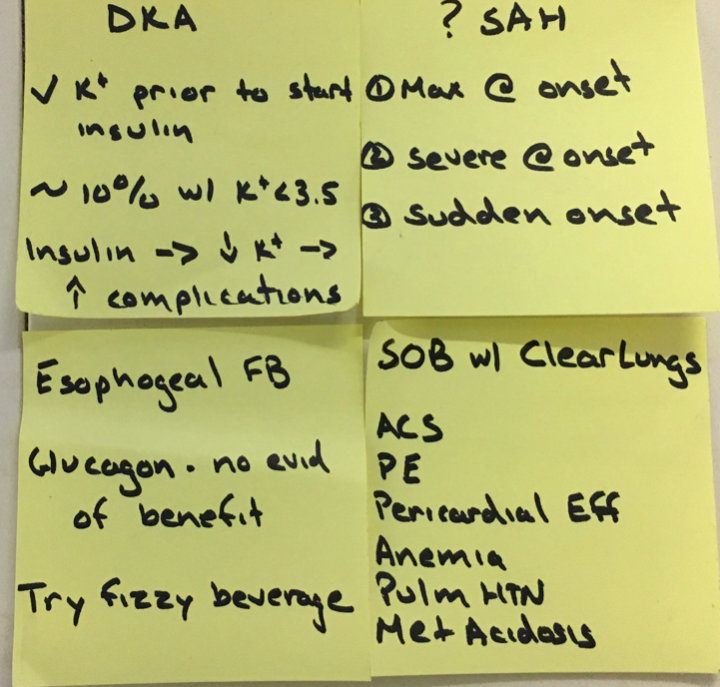 DKA
✓ K+ prior to start
insulin
~ 10% w/ K+<3.5
Insulin -> ↓ K+ ->
↑ complications
? SAH
① Max @ onset
② severe @ onset
③ Sudden onset
Esophogeal FB
Glucagon - no evid
of benefit
Try fizzy beverage
SOB w/ Clear Lungs
ACS
PE
Pericardial Eff
Anemia
Pulm HTN
Met Acidosis